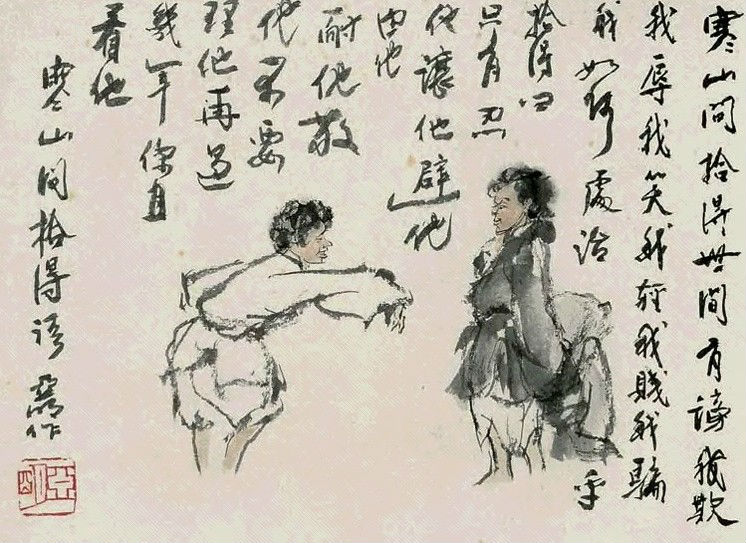 寒山問拾得世間有謗我欺
我辱我笑我輕我賤我騙
我如何處治乎
拾得曰
只有忍
他讓他避他
由他
耐他敬
他不要
理他再過
幾年你且
看他
寒山問拾得語
作